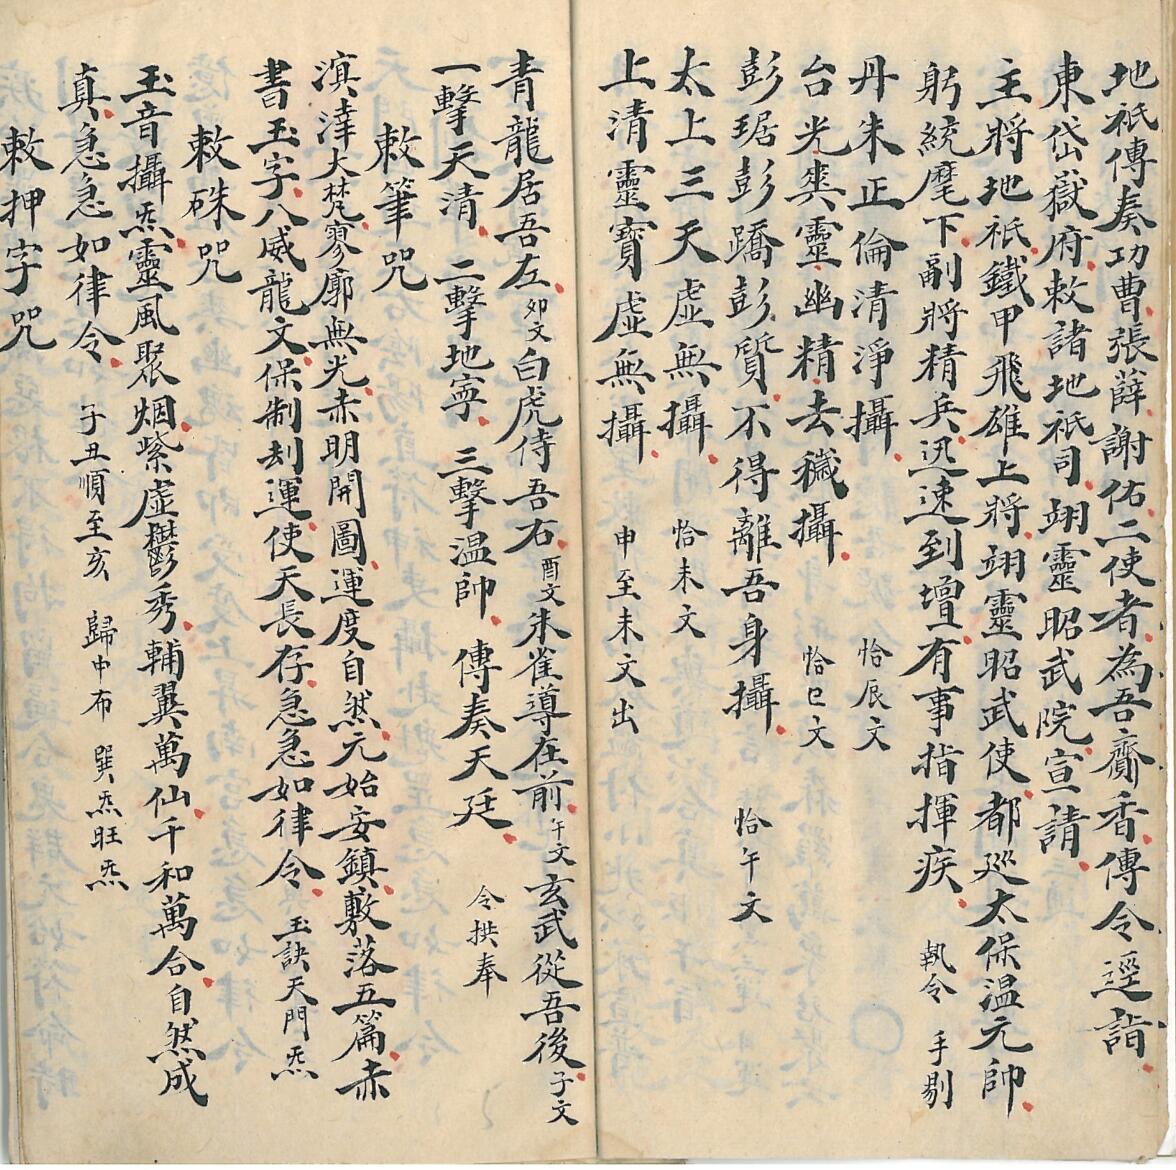 地祇傳奏功曹張薛謝佑二使者為吾齎香傳令逕詣
東岱嶽府敕諸地祇司翊靈昭武院宣請
主將地祇鐵甲飛雄上將翊靈昭武使都巡太保温元帥
躬統麾下副將精兵迅速到壇有事指揮疾 執令 手剔
丹朱正倫清淨攝 恰辰文
台光爽靈幽精去穢攝 恰巳文
彭琚彭蹻彭質不得離吾身攝 恰午文
太上三天虛無攝 恰未文
上清靈寶虛無攝 申至未文出
青龍居吾左卯文白虎侍吾右酉文朱雀導在前午文玄武從吾後子文
一擊天清 二擊地寧 三擊温帥 傳奏天廷 令拱奉
敕筆咒
溟涬大梵寥廓無光赤明開圖運度自然元始安鎮敷落五篇赤
書玉字八威龍文保制刦運使天長存急急如律令 玉訣天門炁
敕硃咒
玉音攝炁靈風聚烟紫虛鬱秀輔翼萬仙千和萬合自然成
真急急如律令 子丑順至亥 歸中布 巽炁旺炁
敕押字咒